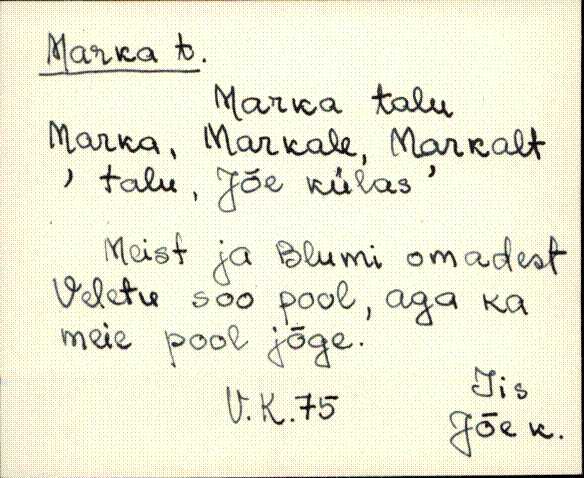 Marka t.
Marka talu
Marka, Markale, Markalt
’ talu, Jõe külas’
Meist ja Blumi omadest
Veletu soo pool, aga ka
meie pool jõge.
V.K.75
Iis
Jõe k.